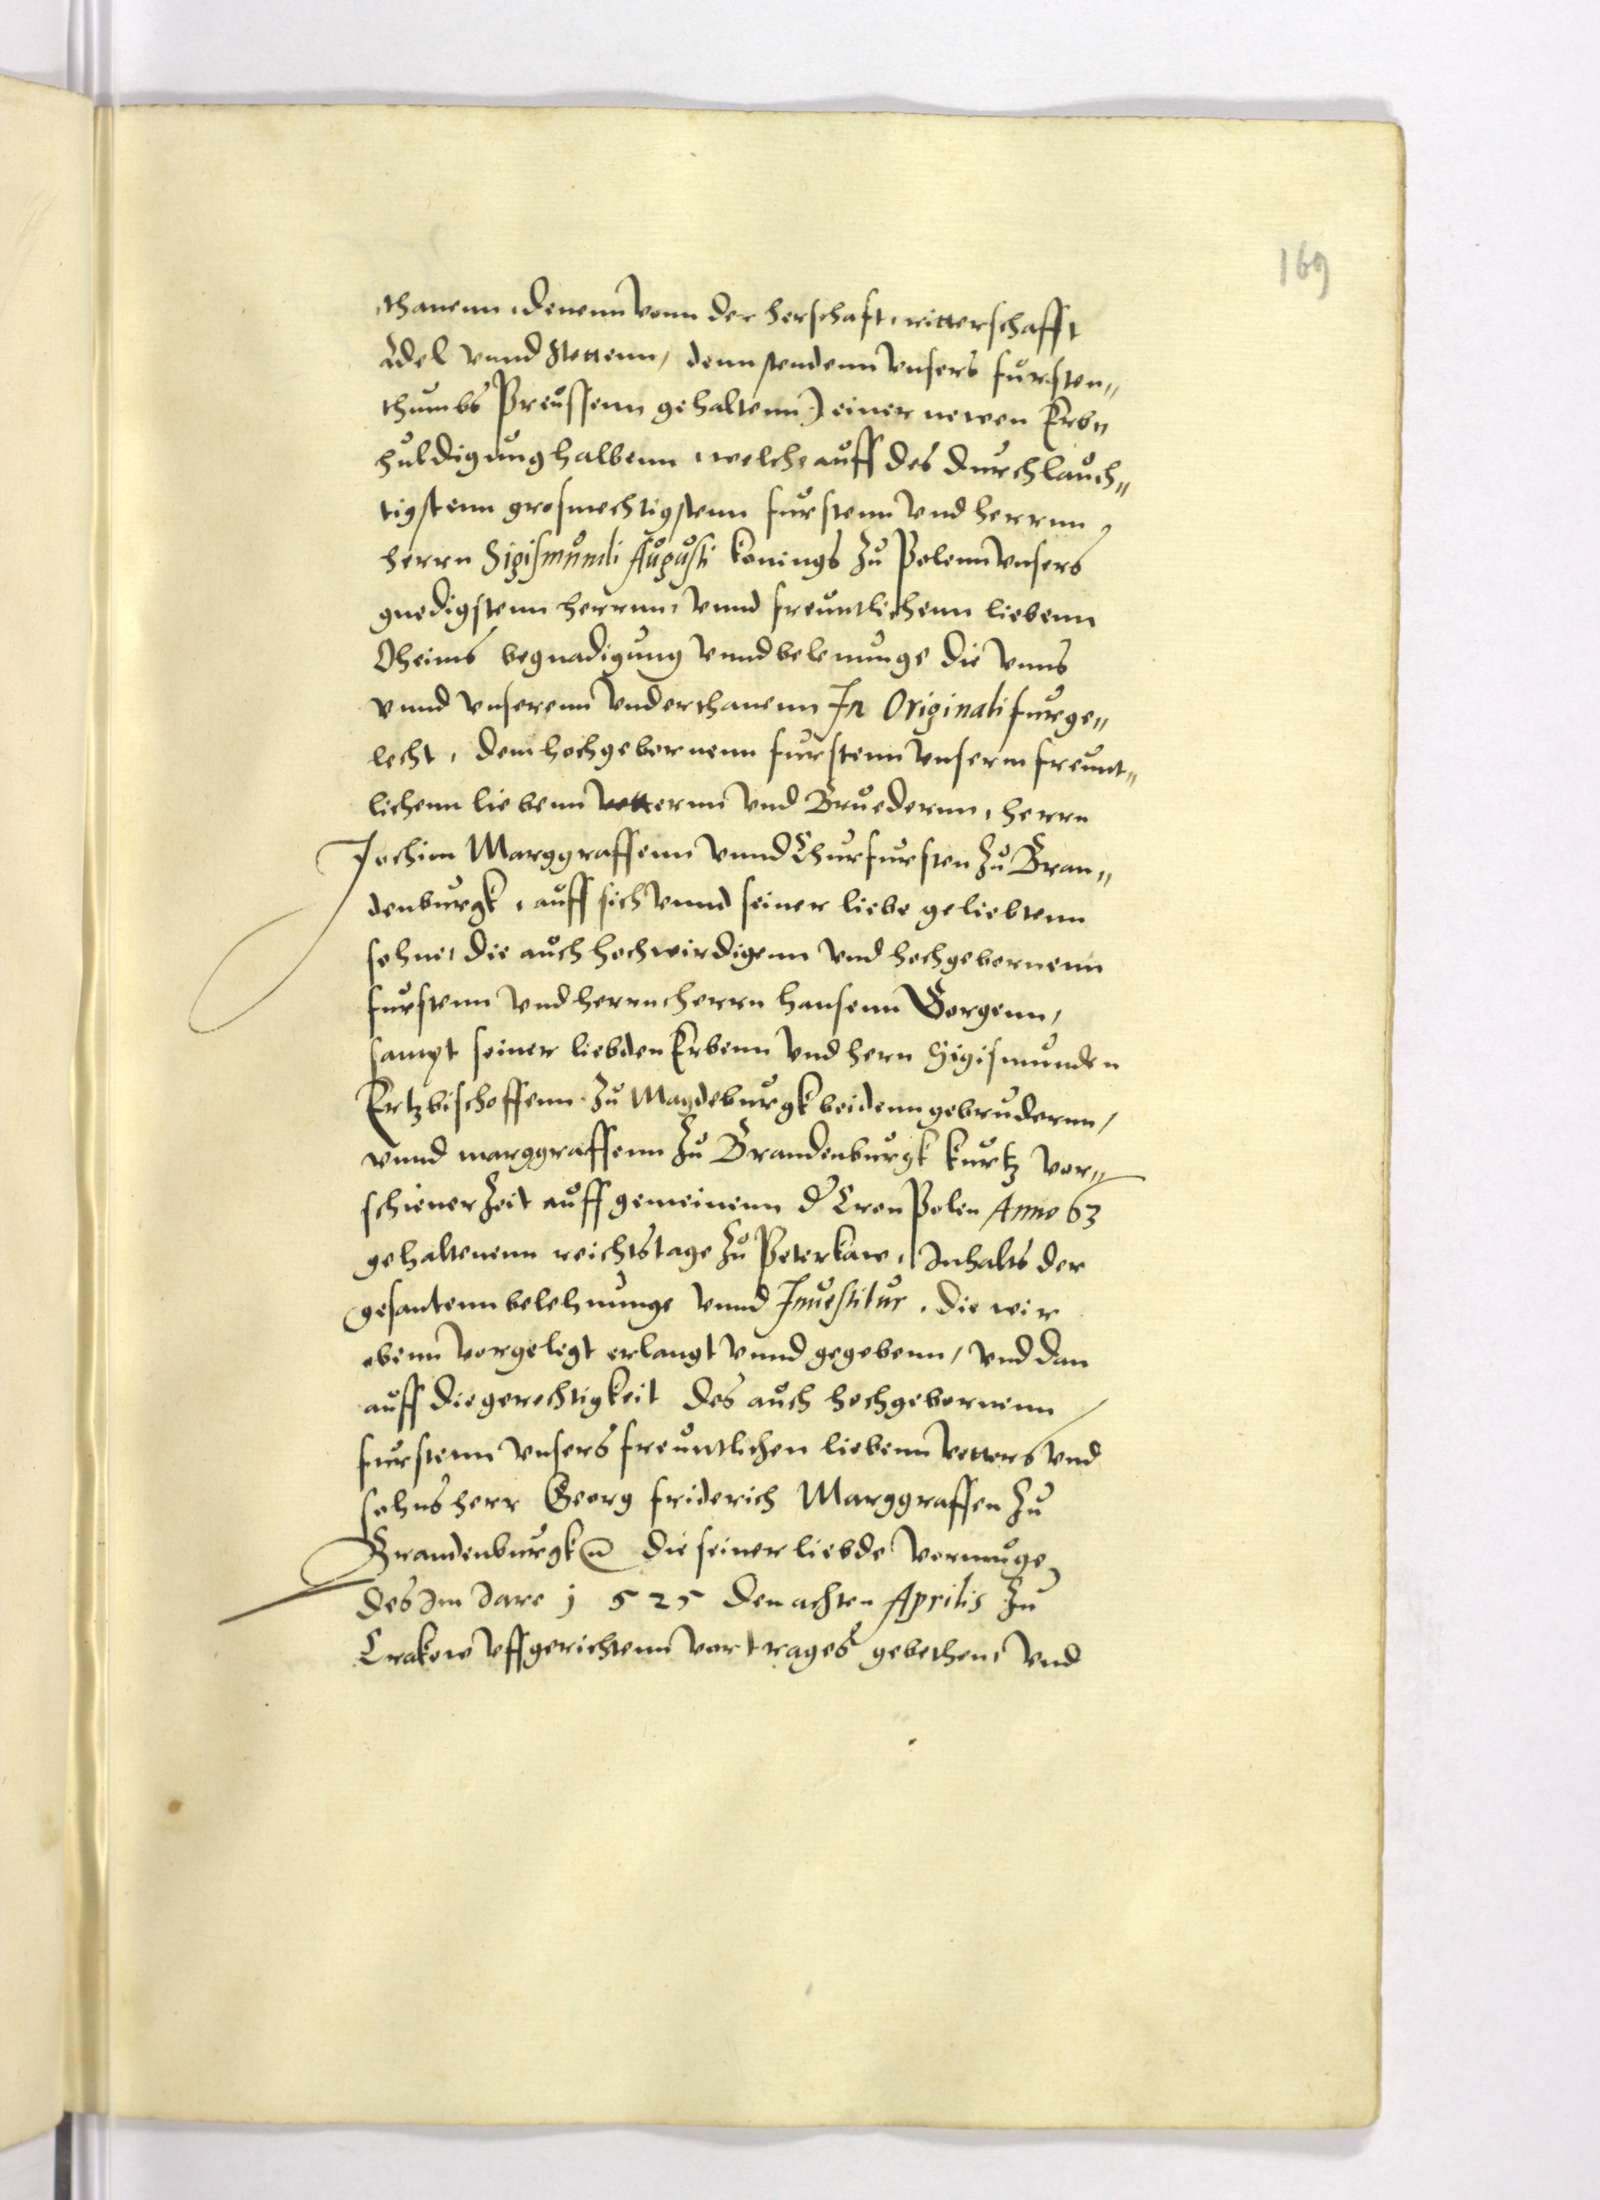 169
thanenn, denenn vonn der herschaft, ritterschafft
Adel vnnd Stettenn, denn stendenn vnsers fursten„
thumbs Preussenn gehaltenn) einer newen Erb„
huldigung halbenn, welche auff des durchlauch„
tigstenn grosmechtigstenn furstenn vnd herrnn,
herrn Sigismundi Augusti konings zu Polenn vnsers
gnedigstenn herrnn, vnnd freuntlichenn liebenn
Oheims begnadigung vnnd belenunge die vnns
vnnd vnserenn vnderthanenn In Originali furge„
lecht, dem hochgebornenn furstenn vnserm freunt„
lichenn liebenn vetternn vnd Bruedernn, herrn
Jochim Marggraffenn vnnd Churfursten zu Bran„
denburgk, auff sich vnnd seiner liebe geliebtenn
sohne, die auch hochwirdigenn vnd hochgebornenn
furstenn vnd herrn herrn hansenn Gorgenn,
sampt seiner liebden Erbenn vnd hern Sigismunden
Ertzbischoffenn zu Magdeburgk beidenn gebrudernn,
vnnd marggraffenn zu Brandenburgk kurtz vor„
schiener zeit auff gemeinenn d' Cron Polen Anno 63
gehaltenenn reichstage zu Peterkaw, Inhalts der
gesantenn belehnunge vnnd Inuestitur, die wir
obenn vorgelegt erlangt vnnd gegebenn, vnd dan
auff die gerechtigkeit des auch hochgebornenn
furstenn vnsers freuntlichen liebenn vetters vnd
sohns herr Georg friderich Marggraffen zu
Brandenburgk die seiner liebde vormuge
des Im Jare 1525 den achten Aprilis zu
Crakow vffgerichtenn vortrages gebethen, vnd